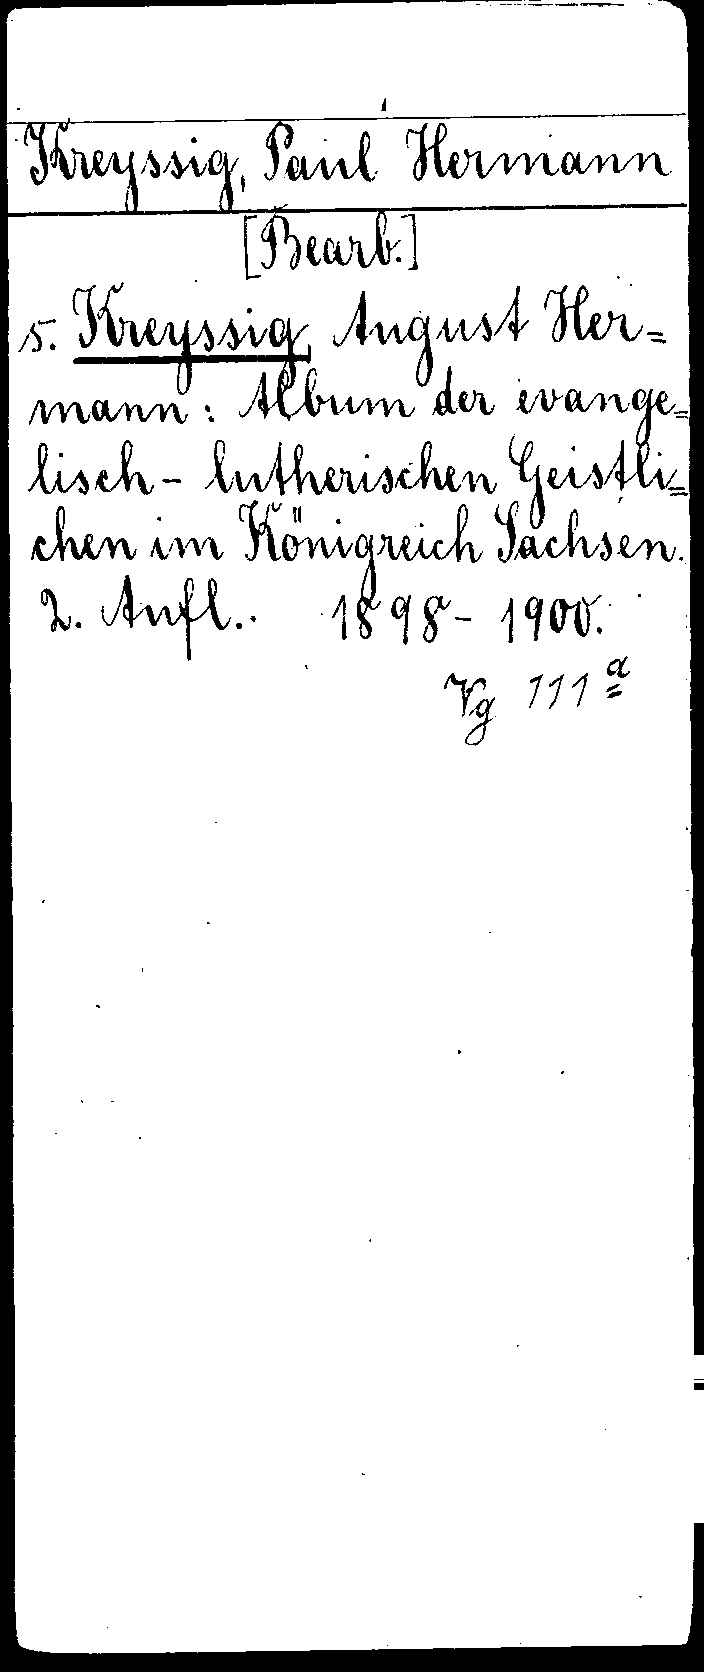 Kreyssig, Paul Hermann
[Bearb.]
s. Kreyssig, August Her=
mann: Album der evange=
lisch-lutherischen Geistli=
chen im Königreich Sachsen.
2. Aufl.. 1898-1900.
Vg 111a